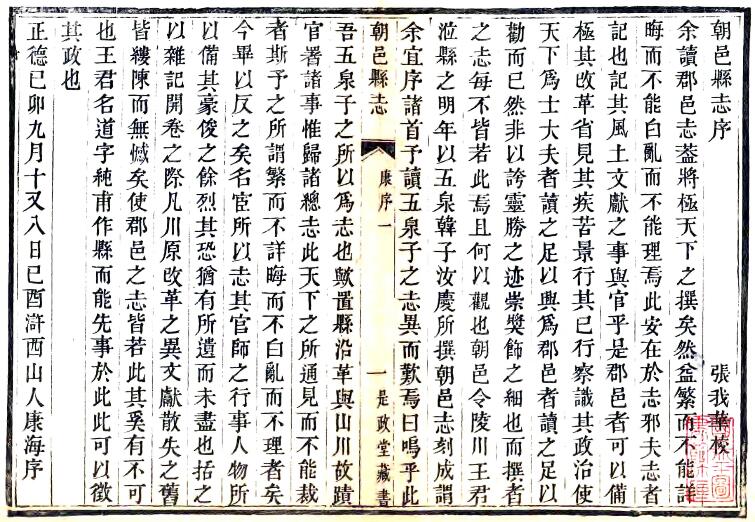 朝邑縣志序
張我華校
余讀郡邑志葢將極天下之撰矣然益繁而不能詳
晦而不能白亂而不能理焉此安在於志邪夫志者
記也記其風土文獻之事與官乎是郡邑者可以備
極其攺革省見其疾苦景行其已行察識其政治使
天下爲士大夫者讀之足以興爲郡邑者讀之足以
勸而已然非以誇靈勝之迹崇奬飾之細也而撰者
之志每不皆若此焉且何以觀也朝邑令陵川王君
涖縣之明年以五泉韓子汝慶所撰朝邑志刻成謂
余宜序諸首予讀五泉子之志異而歎焉曰嗚乎此
朝邑縣志
康序
一
一是政堂藏書
吾五泉子之所以爲志也歟置縣沿革與山川故蹟
官署諸事惟歸諸總志此天下之所通見而不能裁
者斯予之所謂繁而不詳晦而不白亂而不理者矣
今畢以反之矣名宦所以志其官師之行事人物所
以備其豪俊之餘烈其恐猶有所遺而未盡也括之
以雜記開卷之際凡川原攺革之異文獻散失之舊
皆縷陳而無憾矣使郡邑之志皆若此其奚有不可
也王君名道字純甫作縣而能先事於此此可以徵
其政也
正德己卯九月十又八日己酉滸西山人康海序